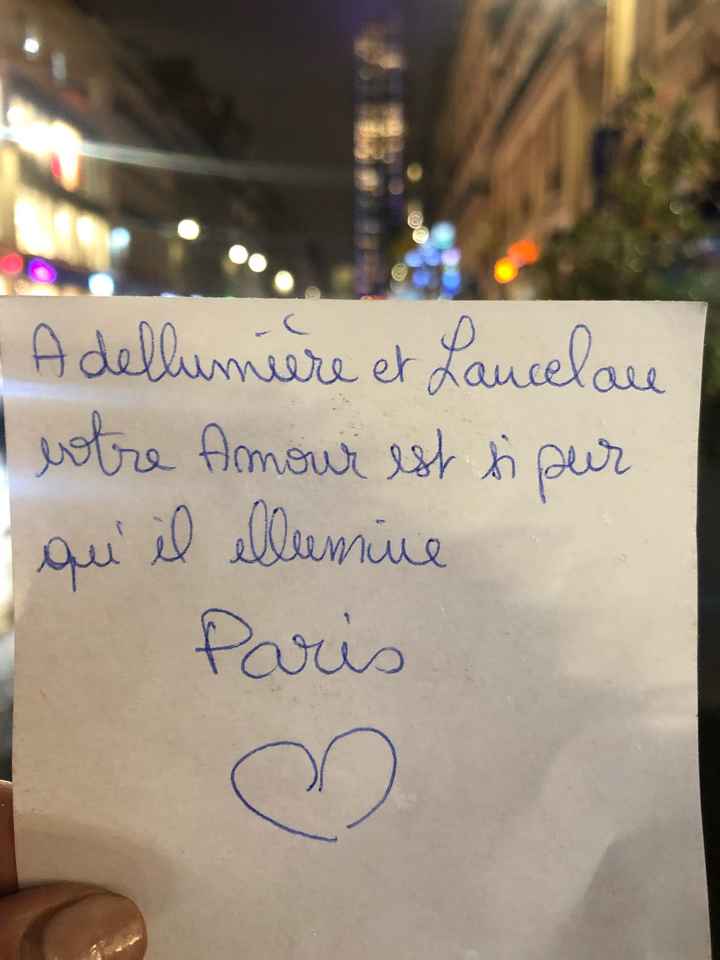 Adellumière et Lancelau
votre Amour est si pur
qu'il illumine
Paris